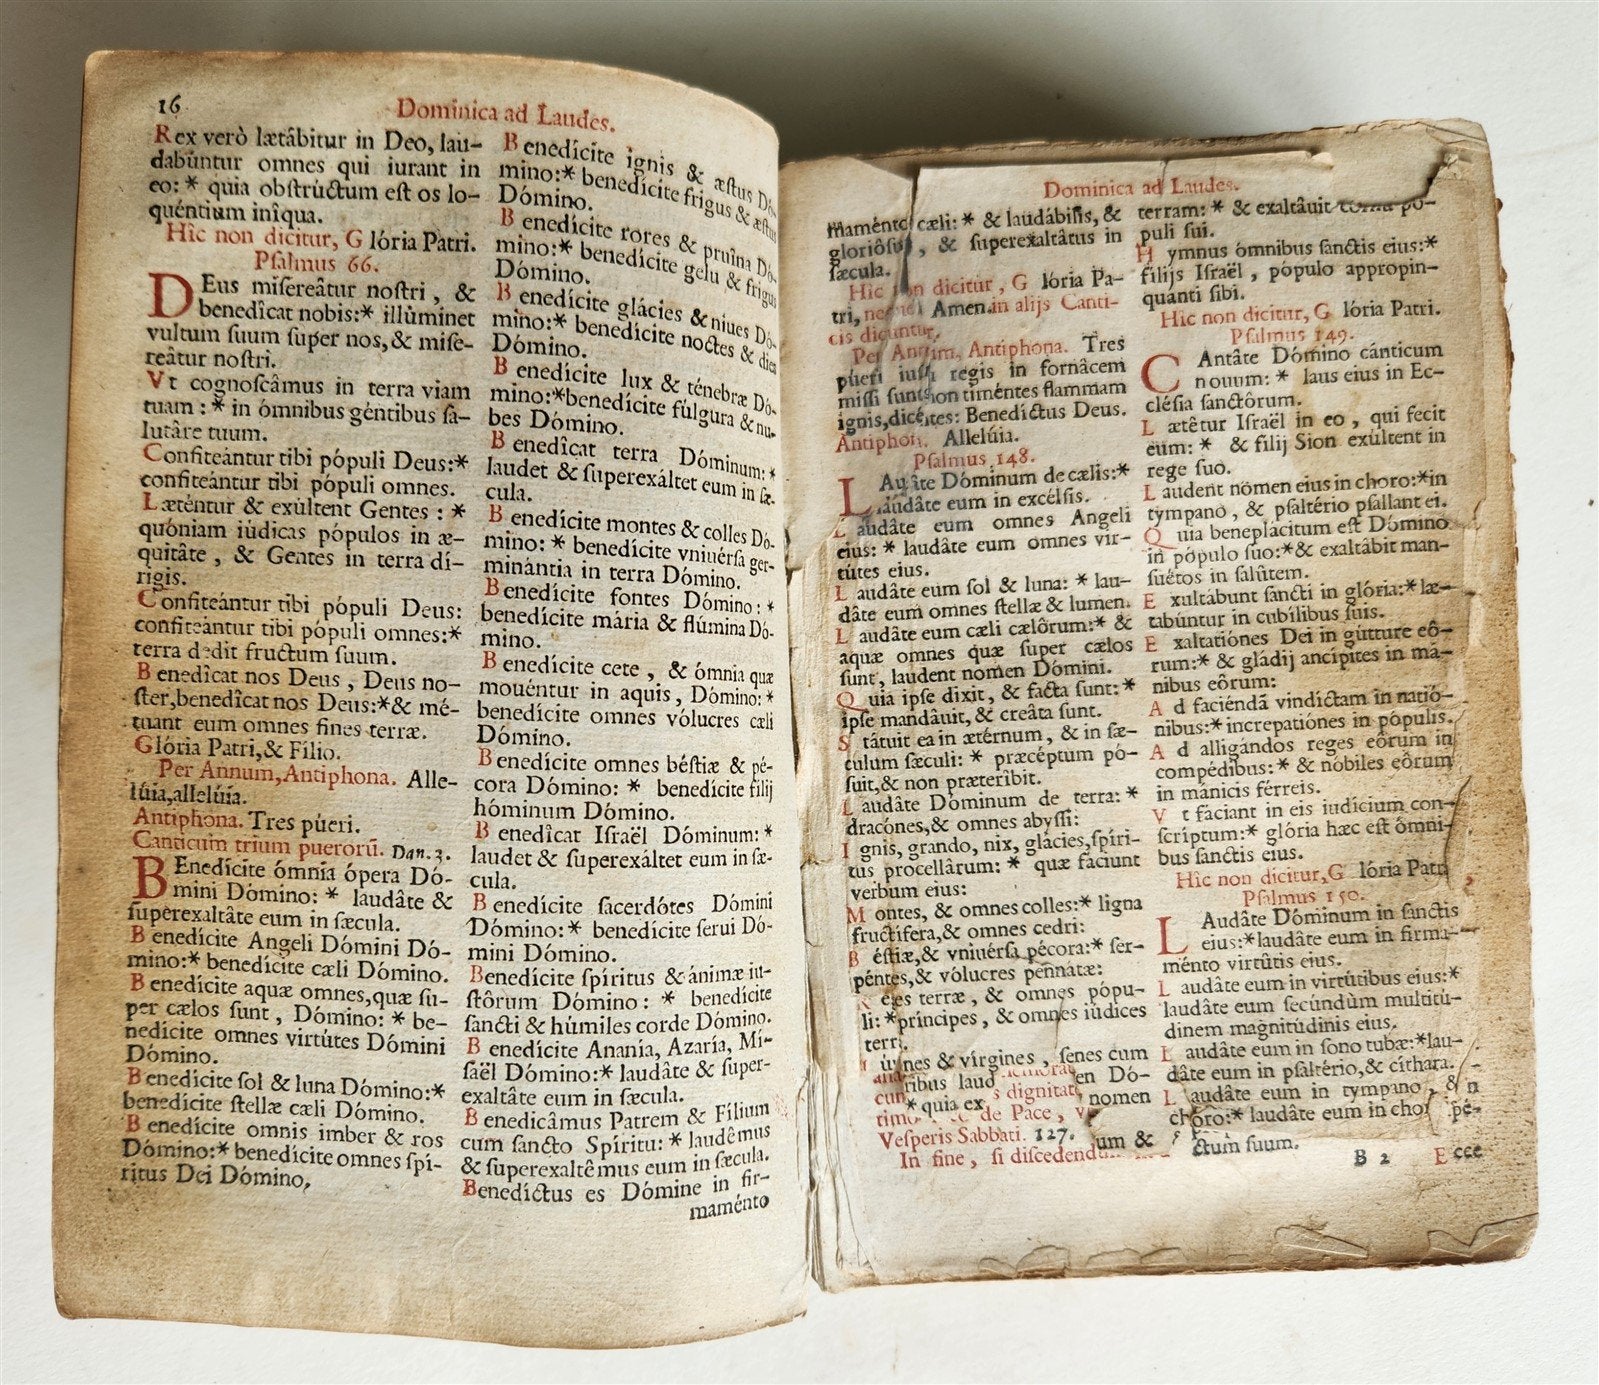 16
Dominica ad Laudes.
Rex verò lætâbitur in Deo, lau-
dabúntur omnes qui iurant in
eo: * quia obstrúctum est os lo-
quéntium inîqua.
Hîc non dicitur, G lória Patri.
Psalmus 66.
DEus misereâtur nostri, &
benedîcat nobis:* illúminet
vultum suum super nos, & mise-
reâtur nostri.
Vt cognoscâmus in terra viam
tuam : * in ómnibus géntibus sa-
lutâre tuum.
Confiteántur tibi pópuli Deus:*
confiteántur tibi pópuli omnes.
Læténtur & exúltent Gentes : *
quóniam iúdicas pópulos in æ-
quitâte, & Gentes in terra dí-
rigis.
Confiteántur tibi pópuli Deus:
confiteántur tibi pópuli omnes:*
terra dedit fructum suum.
Benedîcat nos Deus, Deus no-
ster, benedîcat nos Deus:* & mé-
tuant eum omnes fines terræ.
Glória Patri, & Fílio.
Per Annum, Antiphona. Alle-
lúia, allelúia.
Antiphona. Tres púeri.
Canticum trium puerorũ. Dan. 3.
BEnedícite ómnia ópera Dó-
mini Dómino: * laudâte &
superexaltâte eum in sæcula.
Benedícite Angeli Dómini Dó-
mino:* benedícite cæli Dómino.
Benedícite aquæ omnes, quæ su-
per cælos sunt, Dómino: * be-
nedícite omnes virtútes Dómini
Dómino.
Benedícite sol & luna Dómino:*
benedícite stellæ cæli Dómino.
Benedícite omnis imber & ros
Dómino:* benedícite omnes spí-
ritus Dei Dómino,
Benedícite ignis & æstus Dó-
mino:* benedícite frigus & æstus
Dómino.
Benedícite rores & pruîna Dó-
mino:* benedícite gelu & frigus
Dómino.
Benedícite glácies & niues Dó-
mino:* benedícite noctes & dies
Dómino.
Benedícite lux & ténebræ Dó-
mino:* benedícite fúlgura & nu-
bes Dómino.
Benedîcat terra Dóminum: *
laudet & superexáltet eum in sæ-
cula.
Benedícite montes & colles Dó-
mino: * benedícite vniuérsa ger-
minántia in terra Dómino.
Benedícite fontes Dómino: *
benedícite mária & flúmina Dó-
mino.
Benedícite cete, & ómnia quæ
mouéntur in aquis, Dómino: *
benedícite omnes vólucres cæli
Dómino.
Benedícite omnes béstiæ & pé-
cora Dómino: * benedícite filij
hóminum Dómino.
Benedîcat Israël Dóminum: *
laudet & superexáltet eum in sæ-
cula.
Benedícite sacerdótes Dómini
Dómino:* benedícite serui Dó-
mini Dómino.
Benedícite spíritus & ánimæ iu-
stôrum Dómino: * benedícite
sancti & húmiles corde Dómino.
Benedícite Ananía, Azaría, Mí-
saël Dómino:* laudâte & super-
exaltâte eum in sæcula.
Benedicâmus Patrem & Fílium
cum sancto Spíritu: * laudêmus
& superexaltêmus eum in sæcula.
Benedíctus es Dómine in fir-
maménto
Dominica ad Laudes.
maménto cæli: * & laudábilis, &
gloriôsus, & superexaltâtus in
sæcula.
Hîc non dicitur, G lória Pa-
tri, Amen. in alijs Canti-
cis dicuntur.
Per Annum, Antiphona. Tres
púeri iussu regis in fornâcem
missi sunt, non timéntes flammam
ignis, dicéntes: Benedíctus Deus.
Antiphon. Allelúia.
Psalmus 148.
LAudâte Dóminum de cælis:*
laudâte eum in excélsis.
Laudâte eum omnes Angeli
eius: * laudâte eum omnes vir-
tútes eius.
Laudâte eum sol & luna: * lau-
dâte eum omnes stellæ & lumen.
Laudâte eum cæli cælôrum:* &
aquæ omnes quæ super cælos
sunt, laudent nomen Dómini.
Quia ipse dixit, & facta sunt: *
ipse mandâuit, & creâta sunt.
Státuit ea in ætérnum, & in sæ-
culum sæculi: * præcéptum pó-
suit, & non præterîbit.
Laudâte Dóminum de terra: *
dracónes, & omnes abyssi:
Ignis, grando, nix, glácies, spíri-
tus procellârum: * quæ fáciunt
verbum eius:
Montes, & omnes colles:* ligna
fructífera, & omnes cedri:
Béstiæ, & vniuérsa pécora:* ser-
péntes, & vólucres pennatæ:
Reges terræ, & omnes pópu-
li: * príncipes, & omnes iúdices
terr.
úuenes & vírgines, senes cum
ribus laud en Dó-
* quia ex nomen
cun s dignitat
timo de Pace, V
Vesperis Sabbati. 127.
In fine, si discedendum um &
terram: * & exaltâuit cornu pó-
puli sui.
Hymnus ómnibus sanctis eius:*
fílijs Israël, pópulo appropin-
quanti sibi.
Hîc non dicitur, G lória Patri.
Psalmus 149.
CAntâte Dómino cánticum
nouum: * laus eius in Ec-
clésia sanctôrum.
Lætêtur Israël in eo, qui fecit
eum: * & filij Sion exúltent in
rege suo.
Laudent nômen eius in choro:* in
tympano, & psaltério psallant ei.
Quia beneplácitum est Dómino
in pópulo suo:* & exaltâbit man-
suétos in salûtem.
Exultábunt sancti in glória:* læ-
tabúntur in cubílibus suis.
Exaltatiónes Dei in gútture eô-
rum:* & gládij ancípites in má-
nibus eôrum:
Ad faciéndã vindíctam in natió-
nibus:* increpatiónes in pópulis.
Ad alligándos reges eôrum in
compédibus: * & nóbiles eôrum
in mánicis férreis.
Vt fáciant in eis iudícium con-
scríptum:* glória hæc est ómni-
bus sanctis eius.
Hîc non dicitur, G lória Patri
Psalmus 150.
LAudâte Dóminum in sanctis
eius:* laudâte eum in firma-
ménto virtûtis eius.
Laudâte eum in virtútibus eius:*
laudâte eum secúndùm multitú-
dinem magnitúdinis eius.
Laudâte eum in sono tubæ:* lau-
dâte eum in psaltério, & cíthara.
Laudâte eum in tympano, & n
choro:* laudâte eum in chor pé-
ctum suum.
B 2 Eccc